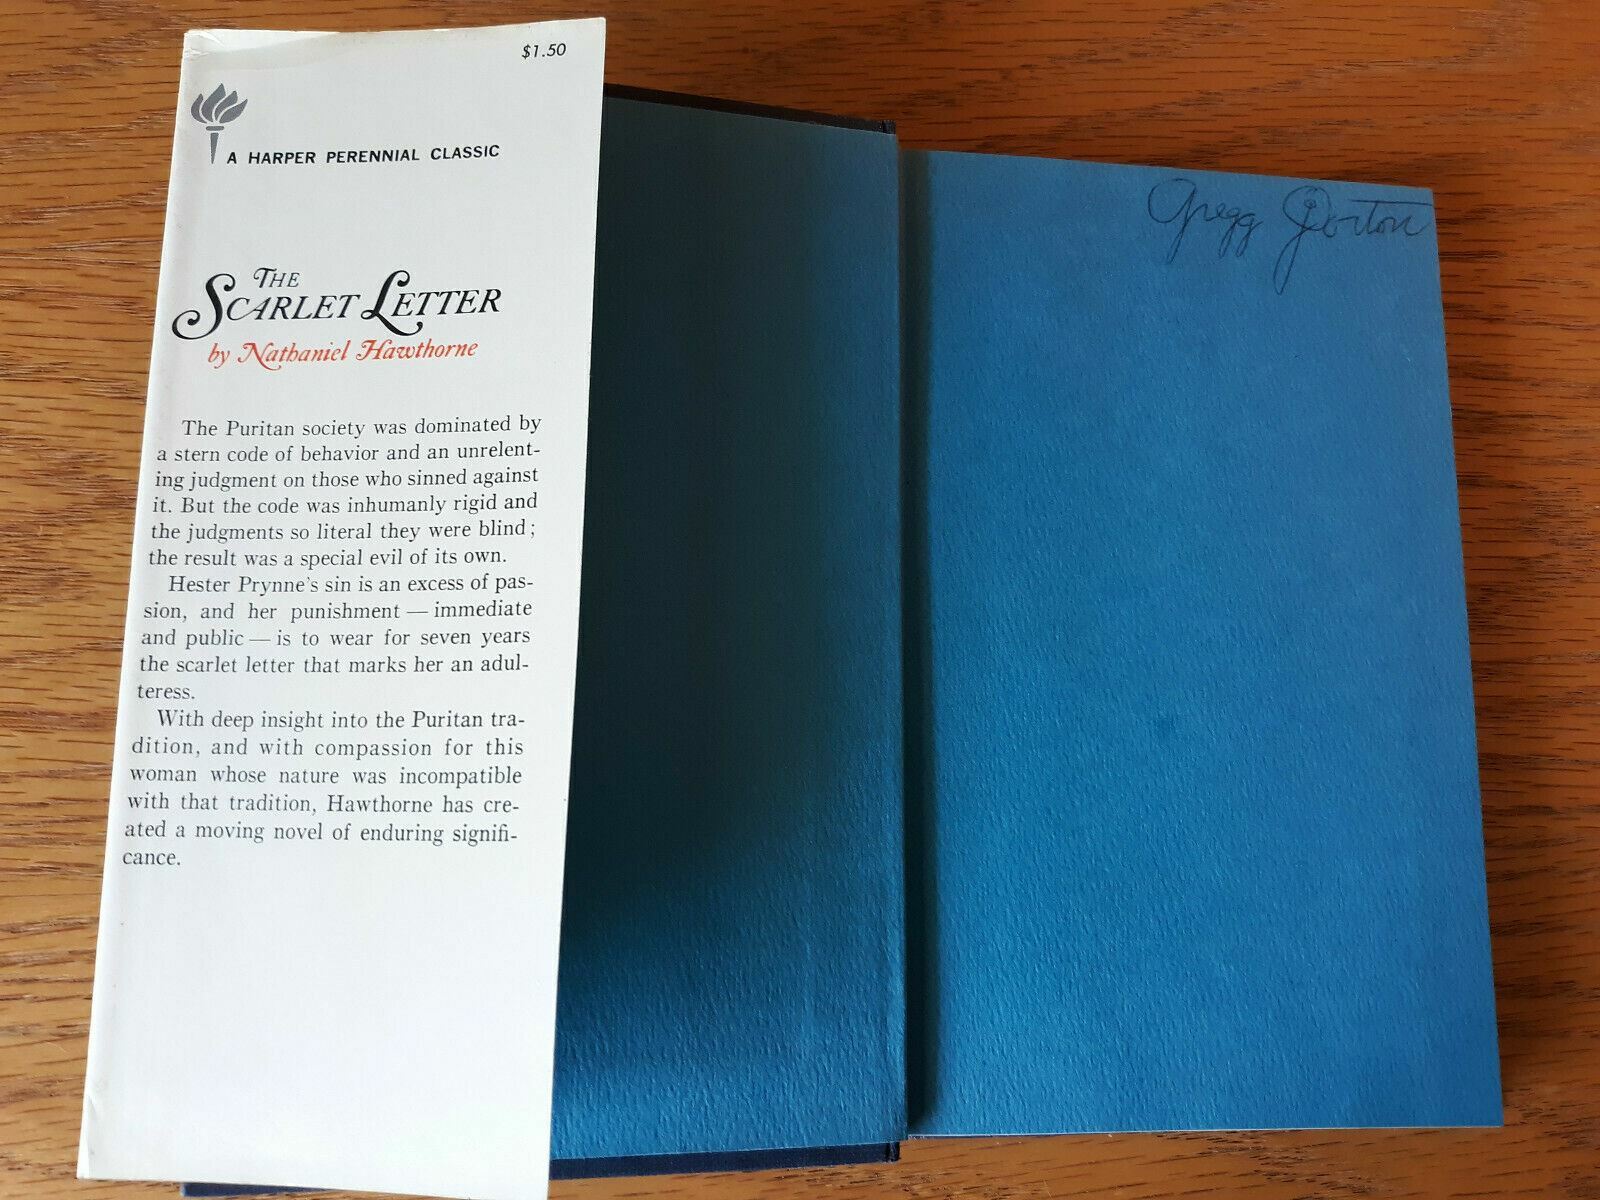 $1.50
A HARPER PERENNIAL CLASSIC
THE
SCARLET LETTER
by Nathaniel Hawthorne
The Puritan society was dominated by
a stern code of behavior and an unrelent-
ing judgment on those who sinned against
it. But the code was inhumanly rigid and
the judgments so literal they were blind;
the result was a special evil of its own.
Hester Prynne's sin is an excess of pas-
sion, and her punishment — immediate
and public — is to wear for seven years
the scarlet letter that marks her an adul-
teress.
With deep insight into the Puritan tra-
dition, and with compassion for this
woman whose nature was incompatible
with that tradition, Hawthorne has cre-
ated a moving novel of enduring signifi-
cance.
Gregg